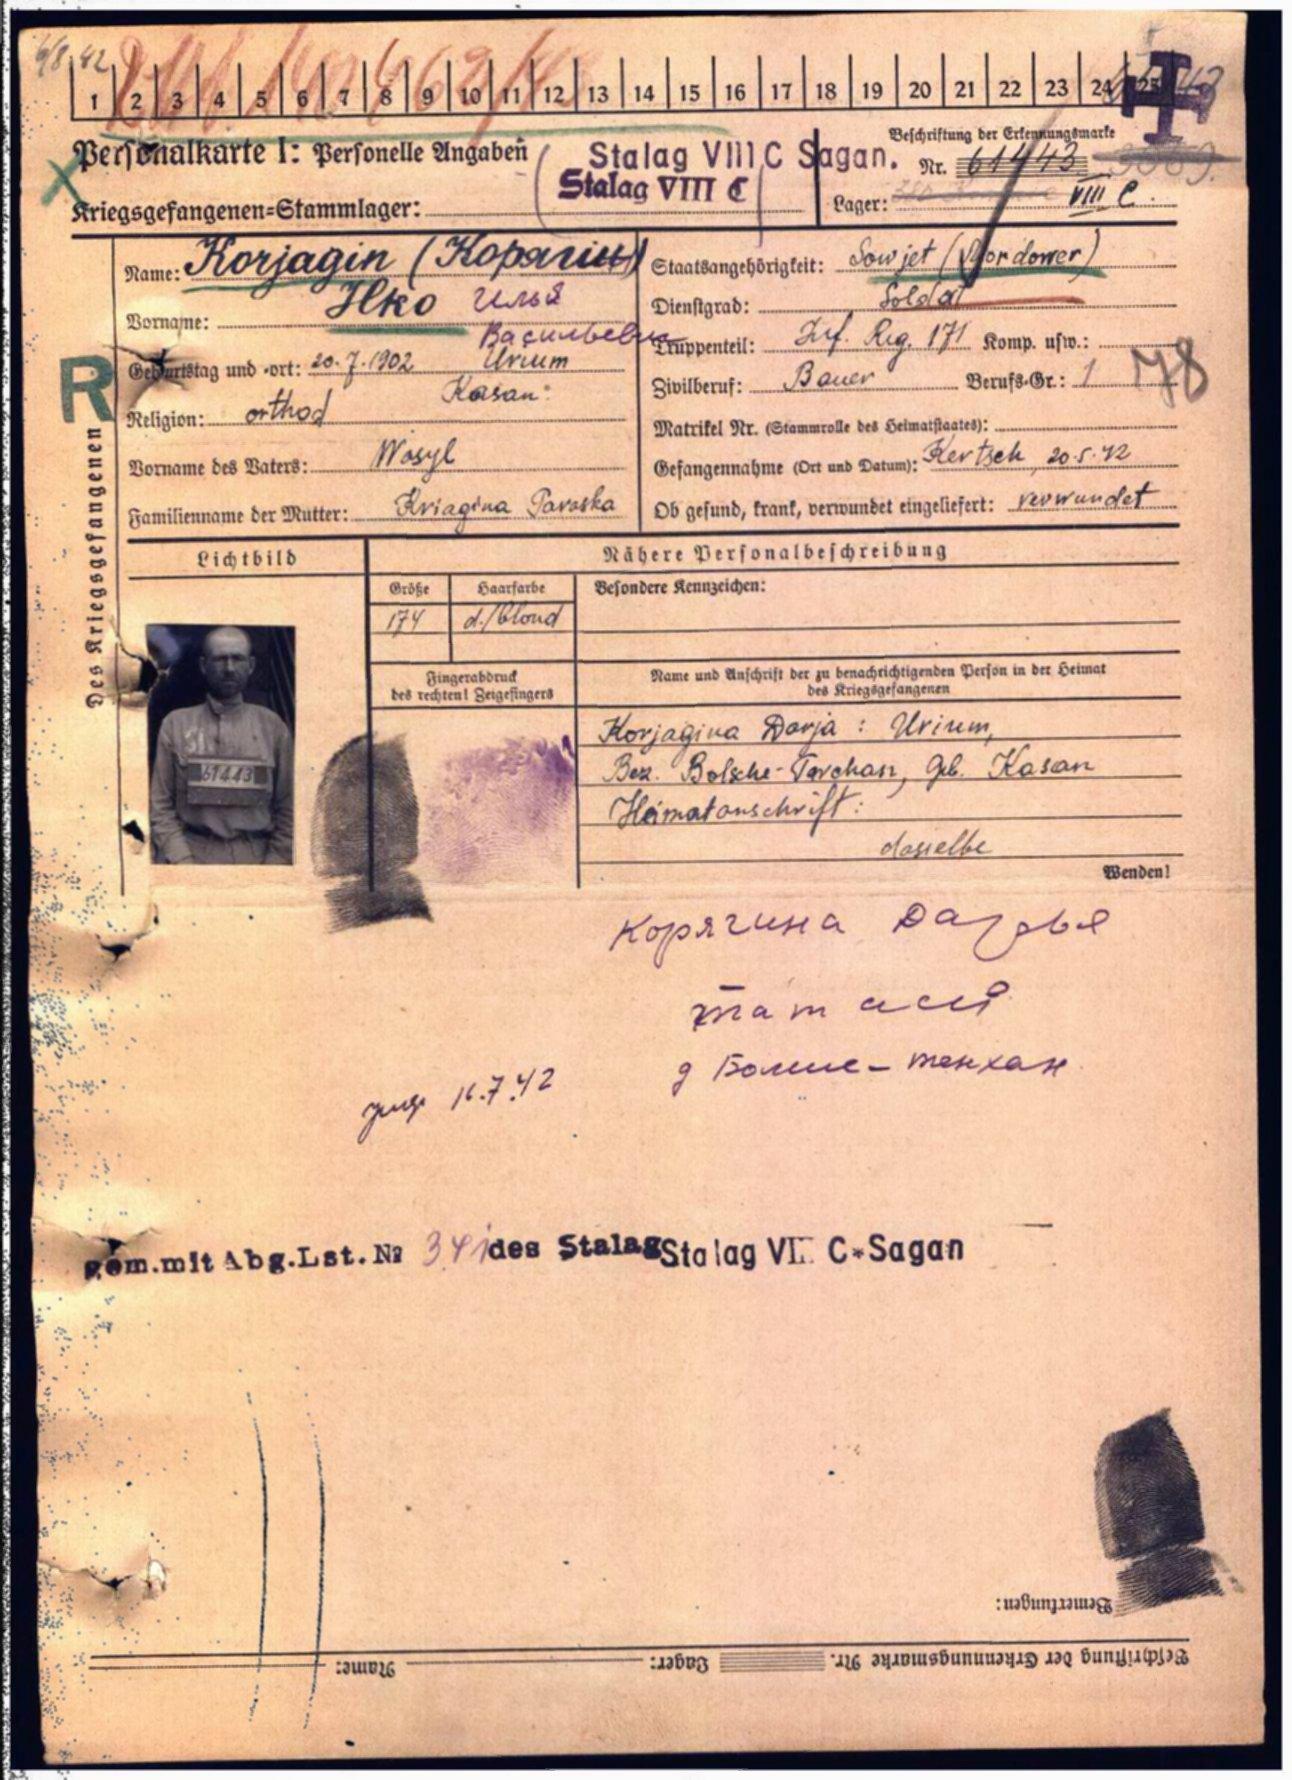 6/8.42
1 2 3 4 5 6 7 8 9 10 11 12 13 14 15 16 17 18 19 20 21 22 23 24 25
Personalkarte I: Personelle Angaben
Stalag VIII C Sagan.
Stalag VIII C
Beschriftung der Erkennungsmarke
Nr. 61443
Kriegsgefangenen-Stammlager:
Lager: VIII C.
Des Kriegsgefangenen
R
Name: Korjagin (Корягин)
Vorname: Ilko Илья
Васильевич
Geburtstag und -ort: 20.7.1902 Urium
Kasan:
Religion: orthod
Vorname des Vaters: Wasyl
Familienname der Mutter: Kriagina Paraska
Staatsangehörigkeit: Sowjet (Mordower)
Dienstgrad: Soldat
Truppenteil: Inf. Reg. 171 Komp. usw.:
Zivilberuf: Bauer Berufs-Gr.: 1
78
Matrikel Nr. (Stammrolle des Heimatstaates):
Gefangennahme (Ort und Datum): Kertsch, 20.5.42
Ob gesund, krank, verwundet eingeliefert: verwundet
Lichtbild
Nähere Personalbeschreibung
Größe
Haarfarbe
Besondere Kennzeichen:
174
d./blond
61443
Fingerabdruck
des rechten! Zeigefingers
Name und Anschrift der zu benachrichtigenden Person in der Heimat
des Kriegsgefangenen
Korjagina Darja: Urium,
Bez. Bolsche-Tarchan, Geb. Kasan
Heimatanschrift:
dasselbe
Wenden!
Корягина Дарья
д Болше-тенхан
16.7.42
gem.mit Abg.Lst.№ 341 des Stalag Stalag VIII C*Sagan
Bemerkungen:
Beschriftung der Erkennungsmarke Nr. Lager: Name: